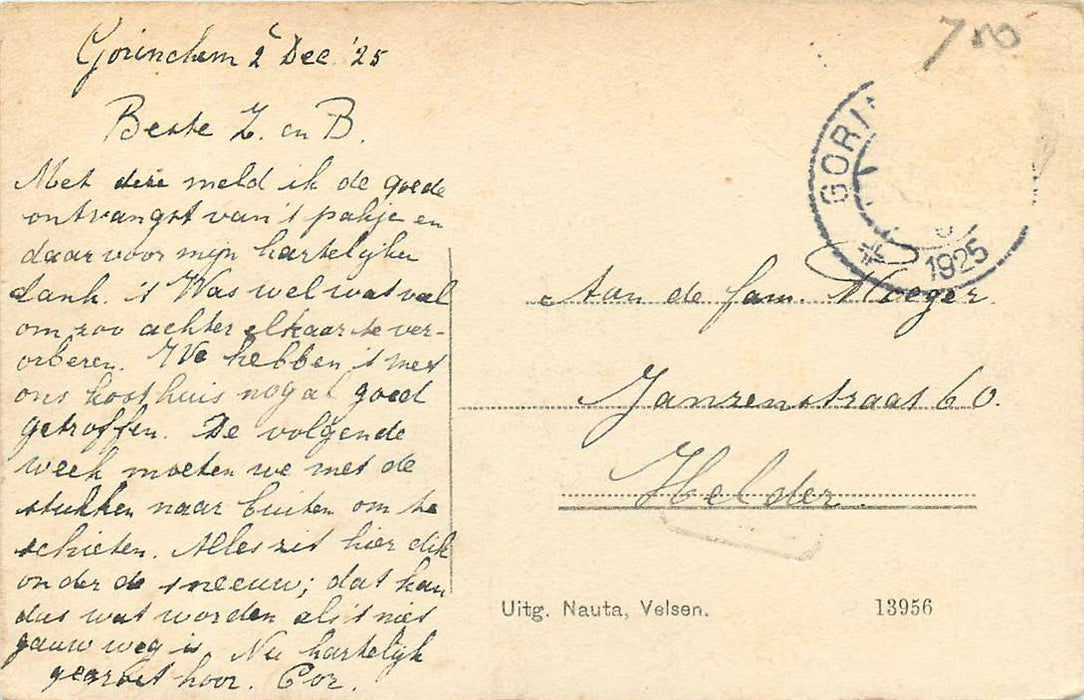 Gorinchem 2 Dec '25
Beste Z. en B.
Met deze meld ik de goede
ontvangst van 't pakje en
daarvoor mijn hartelijken
dank. 't Was wel wat veel
om zoo achter elkaar te ver-
orberen. We hebben 't met
ons kosthuis nogal goed
getroffen. De volgende
week moeten we met de
stukken naar buiten om te
schieten. Alles zit hier dik
onder de sneeuw; dat kan
dus wat worden als 't niet
gauw weg is. Nu hartelijk
gegroet hoor. Cor.
700
GORI
1925
Aan de fam. Kroeger
Janzenstraat 60.
Helder
Uitg. Nauta, Velsen.
13956